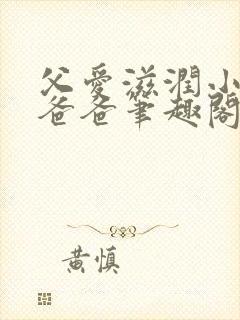 父愛滋潤小
爸爸筆趣閣
黃慎